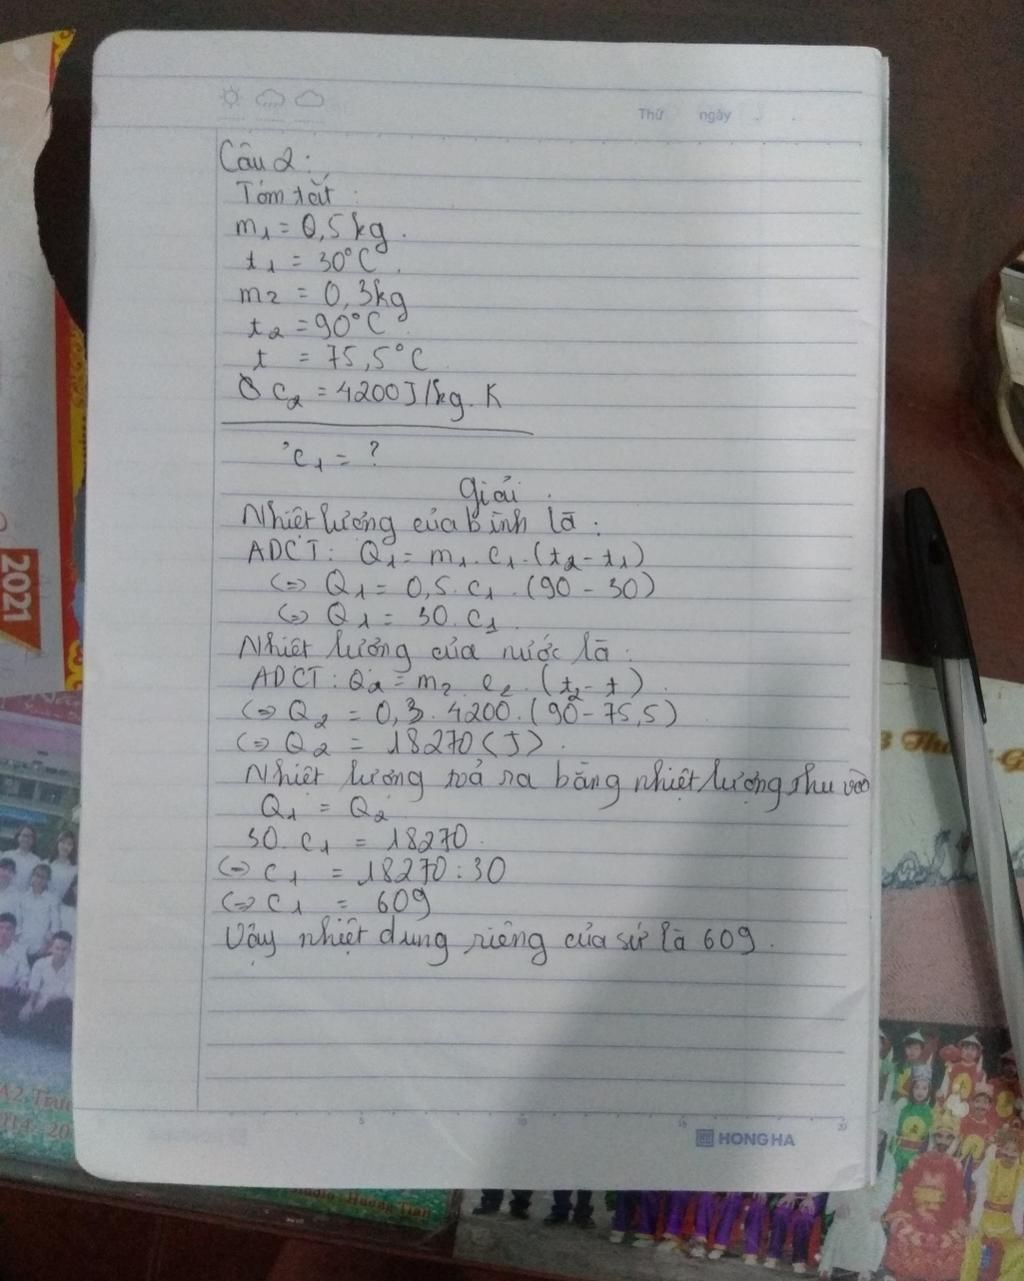 Thứ ngày
Câu 2:
Tóm tắt:
m1 = 0,5kg.
t1 = 30°C.
m2 = 0,3kg
t2 = 90°C
t = 75,5°C
C2 = 4200J/kg.K
C1 = ?
Giải.
Nhiệt lượng của bình là:
ADCT: Q1 = m1.C1.(t2-t1)
(=) Q1 = 0,5.C1.(90-30)
(=) Q1 = 30.C1
Nhiệt lượng của nước là:
ADCT: Q2 = m2.C2.(t2-t).
(=) Q2 = 0,3.4200.(90-75,5)
(=) Q2 = 18270(J).
Nhiệt lượng toả ra bằng nhiệt lượng thu vào
Q1 = Q2
30.C1 = 18270.
(=) C1 = 18270:30
(=) C1 = 609
Vậy nhiệt dung riêng của sứ là 609.
5 10 15 20
HONG HA
2021